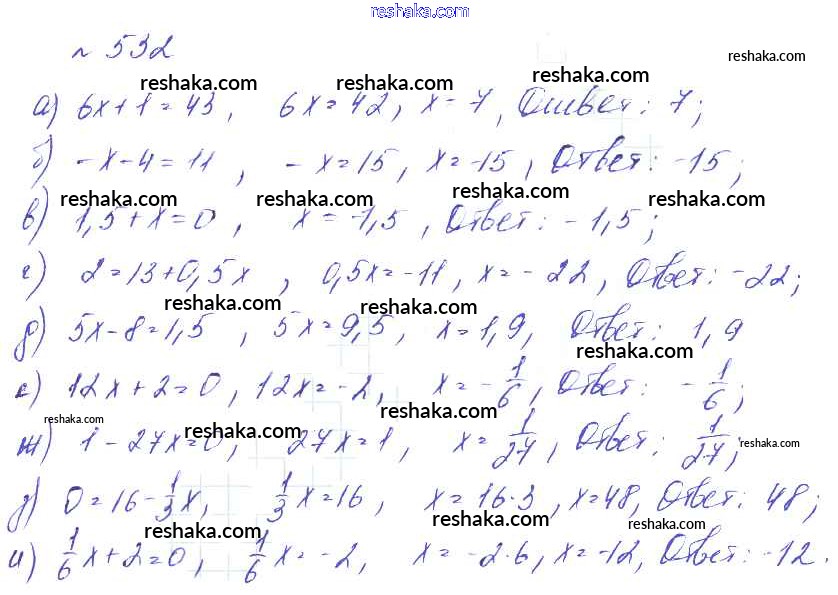 reshaka.com
№ 532
reshaka.com
reshaka.com reshaka.com reshaka.com
а) 6x+1=43, 6x=42, x=7, Ответ: 7;
б) -x-4=11, -x=15, x=-15, Ответ: -15;
reshaka.com reshaka.com reshaka.com reshaka.com
в) 1,5+x=0, x=-1,5, Ответ: -1,5;
г) 2=13+0,5x, 0,5x=-11, x=-22, Ответ: -22;
reshaka.com reshaka.com
д) 5x-8=1,5, 5x=9,5, x=1,9, Ответ: 1,9
reshaka.com
е) 12x+2=0, 12x=-2, x=-1/6, Ответ: -1/6;
reshaka.com reshaka.com reshaka.com
ж) 1-27x=0, 27x=1, x=1/27, Ответ: 1/27;
reshaka.com
з) 0=16-1/3x, 1/3x=16, x=16·3, x=48, Ответ: 48;
reshaka.com reshaka.com reshaka.com
и) 1/6x+2=0, 1/6x=-2, x=-2·6, x=-12, Ответ: -12.